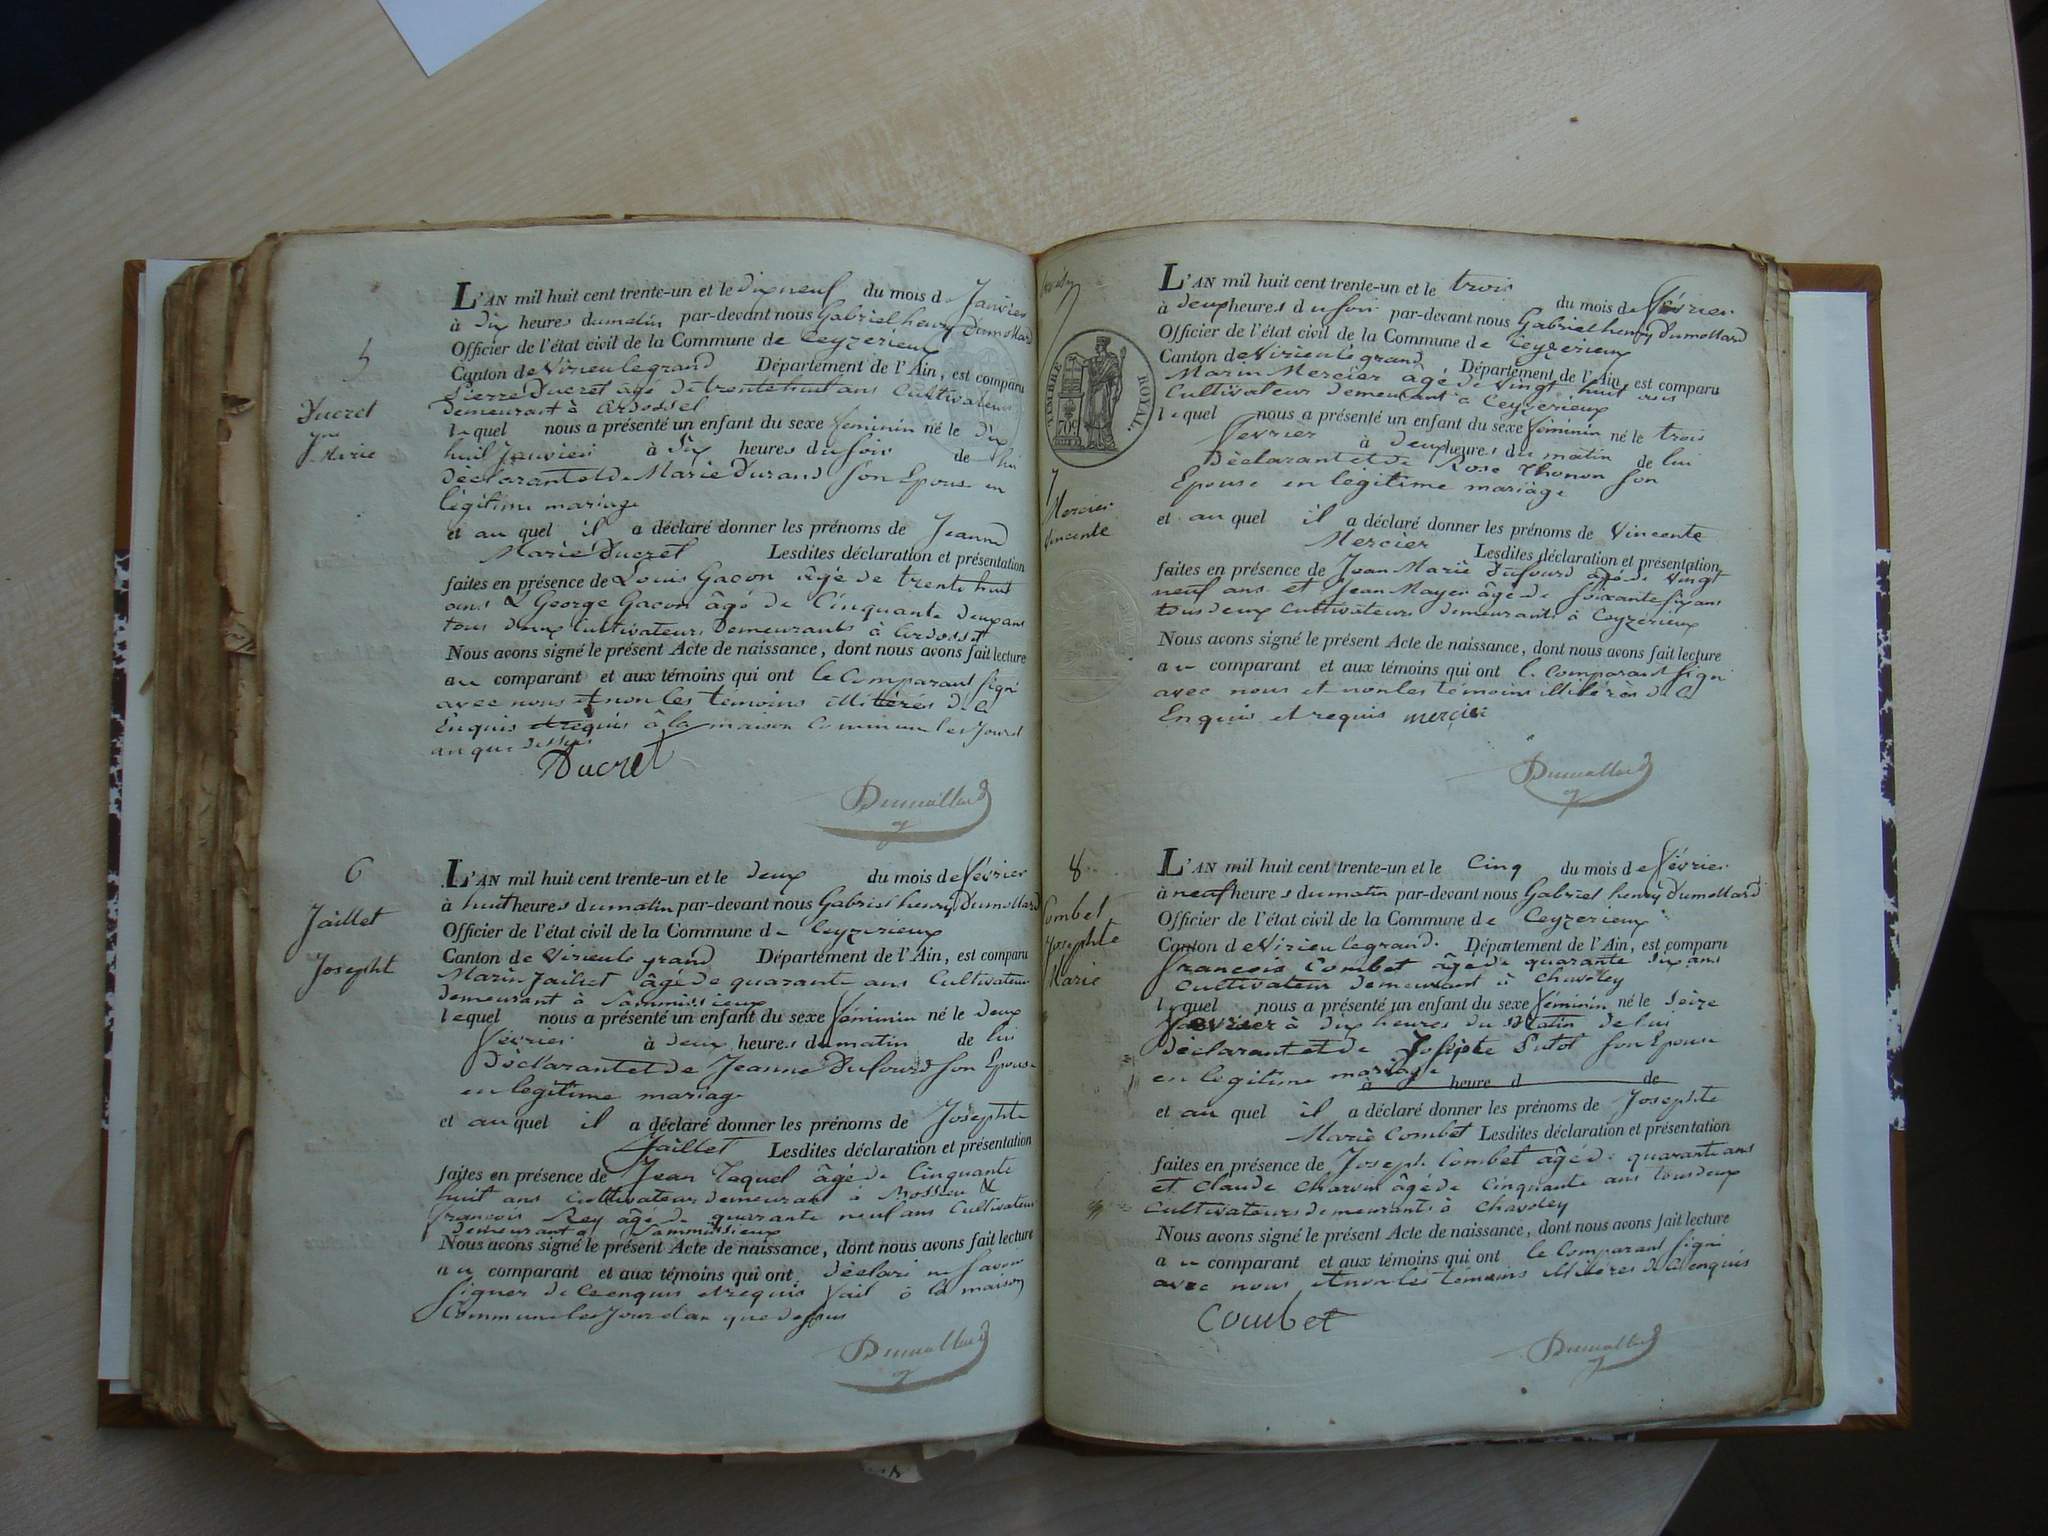 5
Ducret
Jne
Marie
L'AN mil huit cent trente-un et le dix neuf du mois de Janvier
à dix heures du matin par-devant nous Gabriel henry Dumollard
Officier de l'état civil de la Commune de Ceyzerieux
Canton de Virieu le grand Département de l'Ain, est comparu
Pierre Ducret âgé de trente huit ans Cultivateur
demeurant à Ardosset
lequel nous a présenté un enfant du sexe féminin né le dix
huit janvier à dix heures du soir de lui
déclarant et de Marie Durand son Epouse en
légitime mariage
et au quel il a déclaré donner les prénoms de Jeanne
Marie Ducret Lesdites déclaration et présentation
faites en présence de Louis Gacon âgé de trente huit
ans & George Gacon âgé de Cinquante deux ans
tous deux Cultivateurs demeurants à Ardosset
Nous avons signé le présent Acte de naissance, dont nous avons fait lecture
au comparant et aux témoins qui ont le Comparant signé
avec nous et non les témoins illitérés de ce
Enquis et requis à la maison Commune les Jour et
an que dessus
Ducret
Dumollard
6
Jaillet
Josephte
L'AN mil huit cent trente-un et le deux du mois de février
à huit heures du matin par-devant nous Gabriel henry Dumollard
Officier de l'état civil de la Commune de Ceyzerieux
Canton de Virieu le grand Département de l'Ain, est comparu
Marin Jaillet âgé de quarante ans Cultivateur
demeurant à Sammissieux
lequel nous a présenté un enfant du sexe féminin né le deux
février à deux heures du matin de lui
Déclarant et de Jeanne Dufourd son Epouse
en legitime mariage
et au quel il a déclaré donner les prénoms de Josephte
Jaillet Lesdites déclaration et présentation
faites en présence de Jean Taquel âgé de Cinquante
huit ans Cultivateur demeurant à &
françois Rey âgé de quarante neuf ans Cultivateur
demeurant à Sammissieux
Nous avons signé le présent Acte de naissance, dont nous avons fait lecture
au comparant et aux témoins qui ont déclaré ne savoir
signer de ce enquis et requis fait à la maison
Commune les Jour et an que dessus
Dumollard
TIMBRE ROYAL
7
Mercier
Vincente
L'AN mil huit cent trente-un et le trois du mois de février
à deux heures du soir par-devant nous Gabriel henry Dumollard
Officier de l'état civil de la Commune de Ceyzerieux
Canton de Virieu le grand Département de l'Ain, est comparu
Marin Mercier âgé de vingt huit ans
Cultivateur demeurant à Ceyzerieux
lequel nous a présenté un enfant du sexe féminin né le trois
fevrier à deux heures du matin de lui
Déclarant et de Rose Thonon son
Epouse en légitime mariage
et au quel il a déclaré donner les prénoms de Vincente
Mercier Lesdites déclaration et présentation
faites en présence de Jean Marie Dufourd âgé de vingt
neuf ans et Jean Mayer âgé de soixante six ans
tous deux Cultivateurs demeurants à Ceyzerieux
Nous avons signé le présent Acte de naissance, dont nous avons fait lecture
au comparant et aux témoins qui ont le Comparant signé
avec nous et non les témoins illitérés de ce
Enquis et requis mercier
Dumollard
8
Combet
Josephte
Marie
L'AN mil huit cent trente-un et le Cinq du mois de février
à neuf heures du matin par-devant nous Gabriel henry Dumollard
Officier de l'état civil de la Commune de Ceyzerieux
Canton de Virieu le grand Département de l'Ain, est comparu
françois Combet âgé de quarante six ans
Cultivateur demeurant à Chavoley
lequel nous a présenté un enfant du sexe féminin né le
à dix heures du Matin de lui
déclarant et de Josephte Putot son Epouse
en legitime mariage
à heure d de
et au quel il a déclaré donner les prénoms de Josephte
Marie Combet Lesdites déclaration et présentation
faites en présence de Joseph Combet âgé de quarante ans
et Claude Charvet âgé de Cinquante ans tous deux
Cultivateurs demeurants à Chavoley
Nous avons signé le présent Acte de naissance, dont nous avons fait lecture
au comparant et aux témoins qui ont le Comparant signé
avec nous et non les témoins illitérés de ce enquis
Combet
Dumollard